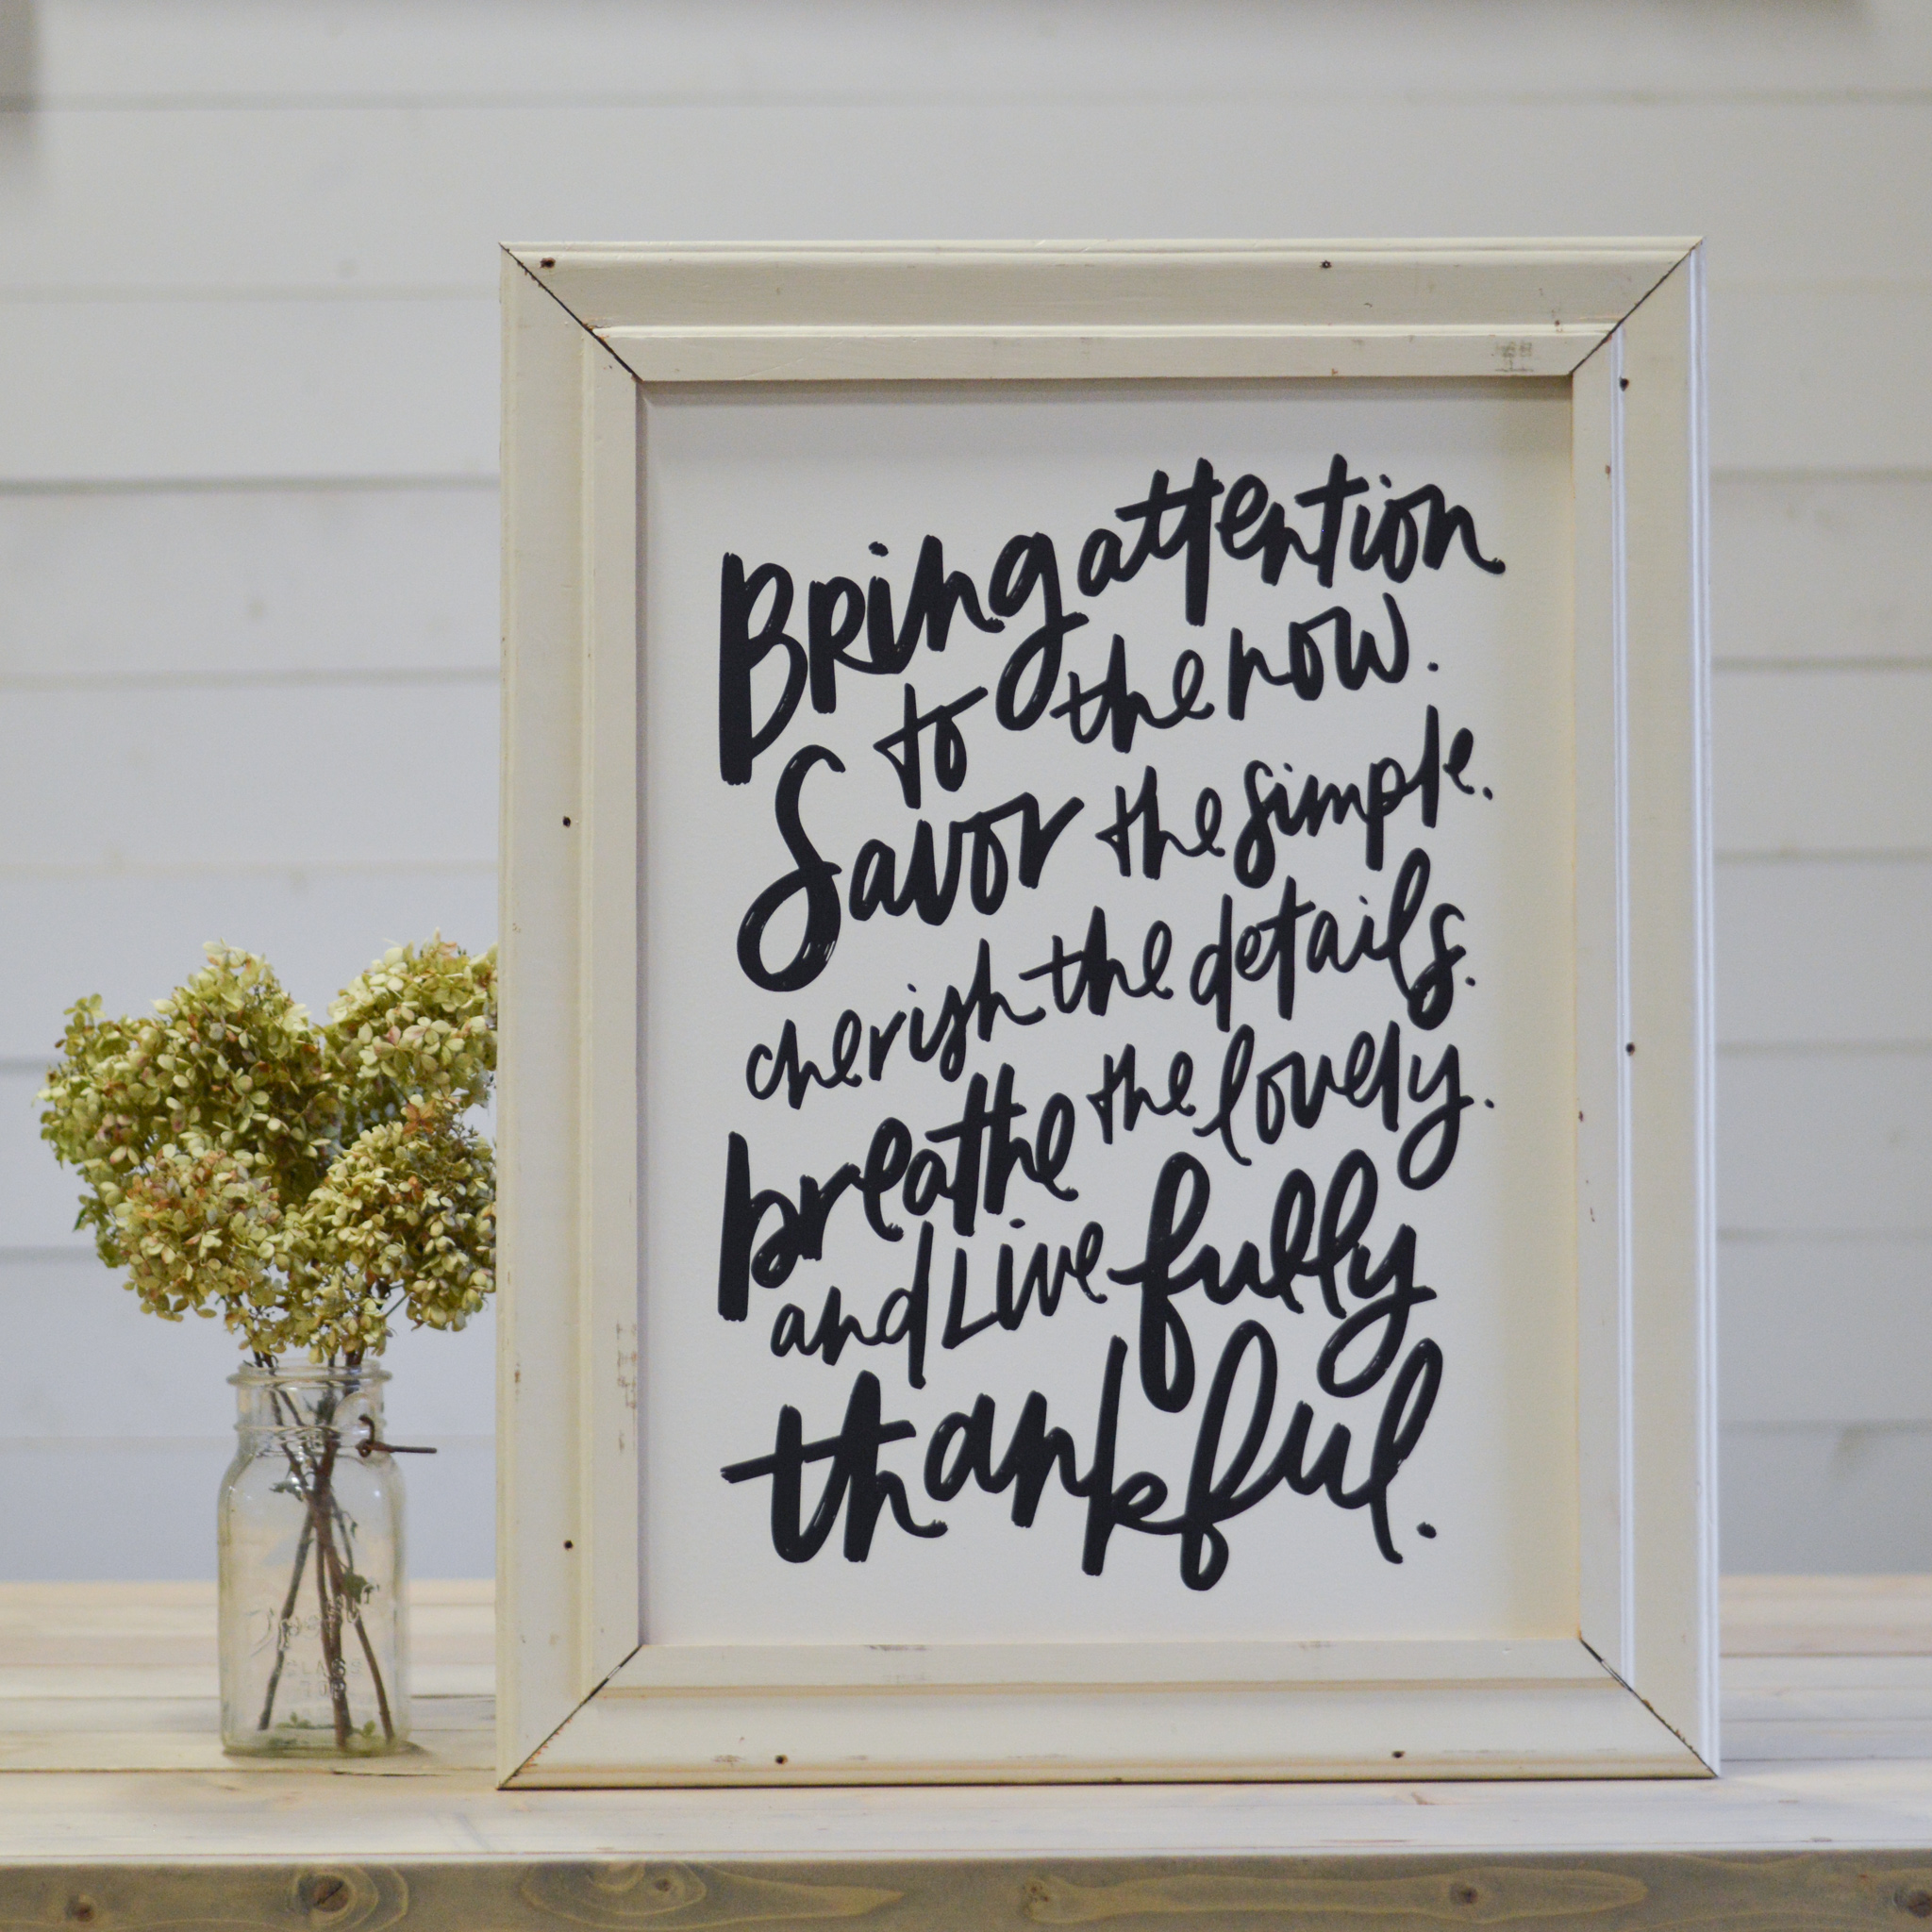 Bring attention
to the now.
Savor the simple.
cherish the details.
breathe the lovely.
and Live fully
thankful.